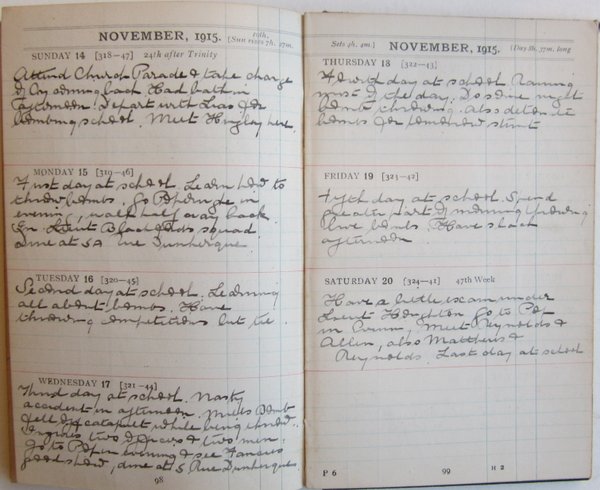 NOVEMBER, 1915.
10th,
[Sun rises 7h. 17m.
SUNDAY 14 [318—47] 24th after Trinity
Attend Church Parade & take charge
of Coy coming back Had bath in
afternoon. Depart with for
bombing school. Meet here.
MONDAY 15 [319—46]
First day at school. Learn how to
throw bombs. Go Poperinge in
evening, walk half way back
In Lieut squad
dine at 5A Rue Dunkerque
TUESDAY 16 [320—45]
Second day at school. Learning
all about bombs. Have
throwing competitions but tie
WEDNESDAY 17 [321—44]
Third day at school. Nasty
accident in afternoon. Mills Bomb
fell off catapult while being thrown.
two officers & two men.
Go to Pop in evening & see Fancies
good show, dine at 5 Rue Dunkerques
98
Sets 4h. 4m.] NOVEMBER, 1915. (Day 8h. 37m. long
THURSDAY 18 [322—43]
Fourth day at school Raining
most of the day. Do some night
bomb throwing. also detonate
bombs for stunt
FRIDAY 19 [323—42]
Fifth day at school. Spend
greater part of morning throwing
live bombs. Have slack
afternoon
SATURDAY 20 [324—41] 47th Week
Have a little exam under
Lieut Go to Pop
in Evening, Meet Reynolds &
Allen, also Matthews &
Reynolds. Last day at school
P 6 99 H 2